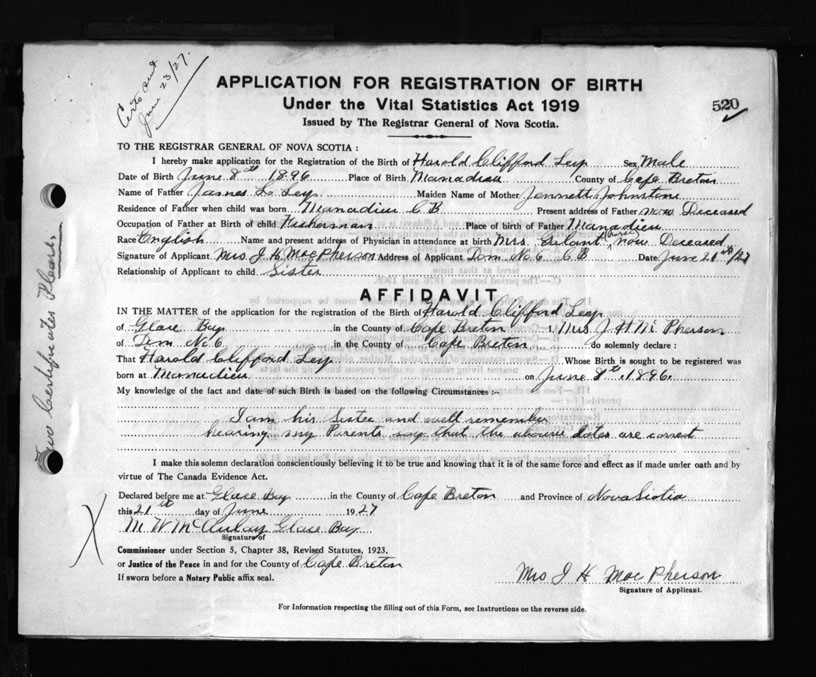 Certs sent
June 23/27.
APPLICATION FOR REGISTRATION OF BIRTH
Under the Vital Statistics Act 1919
520
Issued by The Registrar General of Nova Scotia.
TO THE REGISTRAR GENERAL OF NOVA SCOTIA :
I hereby make application for the Registration of the Birth of Harold Clifford Ley Sex Male
Date of Birth June 8th 1896 Place of Birth Manadieu County of Cape Breton
Name of Father James L. Ley Maiden Name of Mother Jennett Johnstone
Residence of Father when child was born Manadieu C B Present address of Father now Deceased
Occupation of Father at Birth of child Fisherman Place of birth of Father Manadieu
Race English Name and present address of Physician in attendance at birth Mrs. (Nurse) now Deceased
Signature of Applicant Mrs. J H MacPherson Address of Applicant Dom No. 6 C B Date June 21st/27
Relationship of Applicant to child Sister
AFFIDAVIT
IN THE MATTER of the application for the registration of the Birth of Harold Clifford Ley
of Glace Bay in the County of Cape Breton I, Mrs J H Mc Pherson
of Dom No 6 in the County of Cape Breton do solemnly declare :
That Harold Clifford Ley Whose Birth is sought to be registered was
born at Manadieu on June 8th 1896.
My knowledge of the fact and date of such Birth is based on the following Circumstances :-
I am his Sister and well remember
hearing my Parents say that the above Dates are correct
I make this solemn declaration conscientiously believing it to be true and knowing that it is of the same force and effect as if made under oath and by
virtue of The Canada Evidence Act.
Declared before me at Glace Bay in the County of Cape Breton and Province of Nova Scotia
this 21st day of June 1927
M. W McAulay Glace Bay
Signature of
Commissioner under Section 5, Chapter 38, Revised Statutes, 1923,
or Justice of the Peace in and for the County of Cape Breton
If sworn before a Notary Public affix seal.
Mrs J H MacPherson
Signature of Applicant.
For Information respecting the filling out of this Form, see Instructions on the reverse side.
Two Certificates Please.